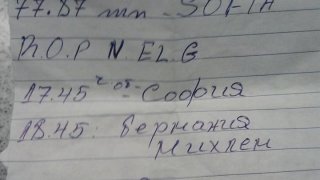 77.87 mm - SOFIA
R.O.P N.EL.G
17.45 ч от - София
18.45: Германия
Михлен